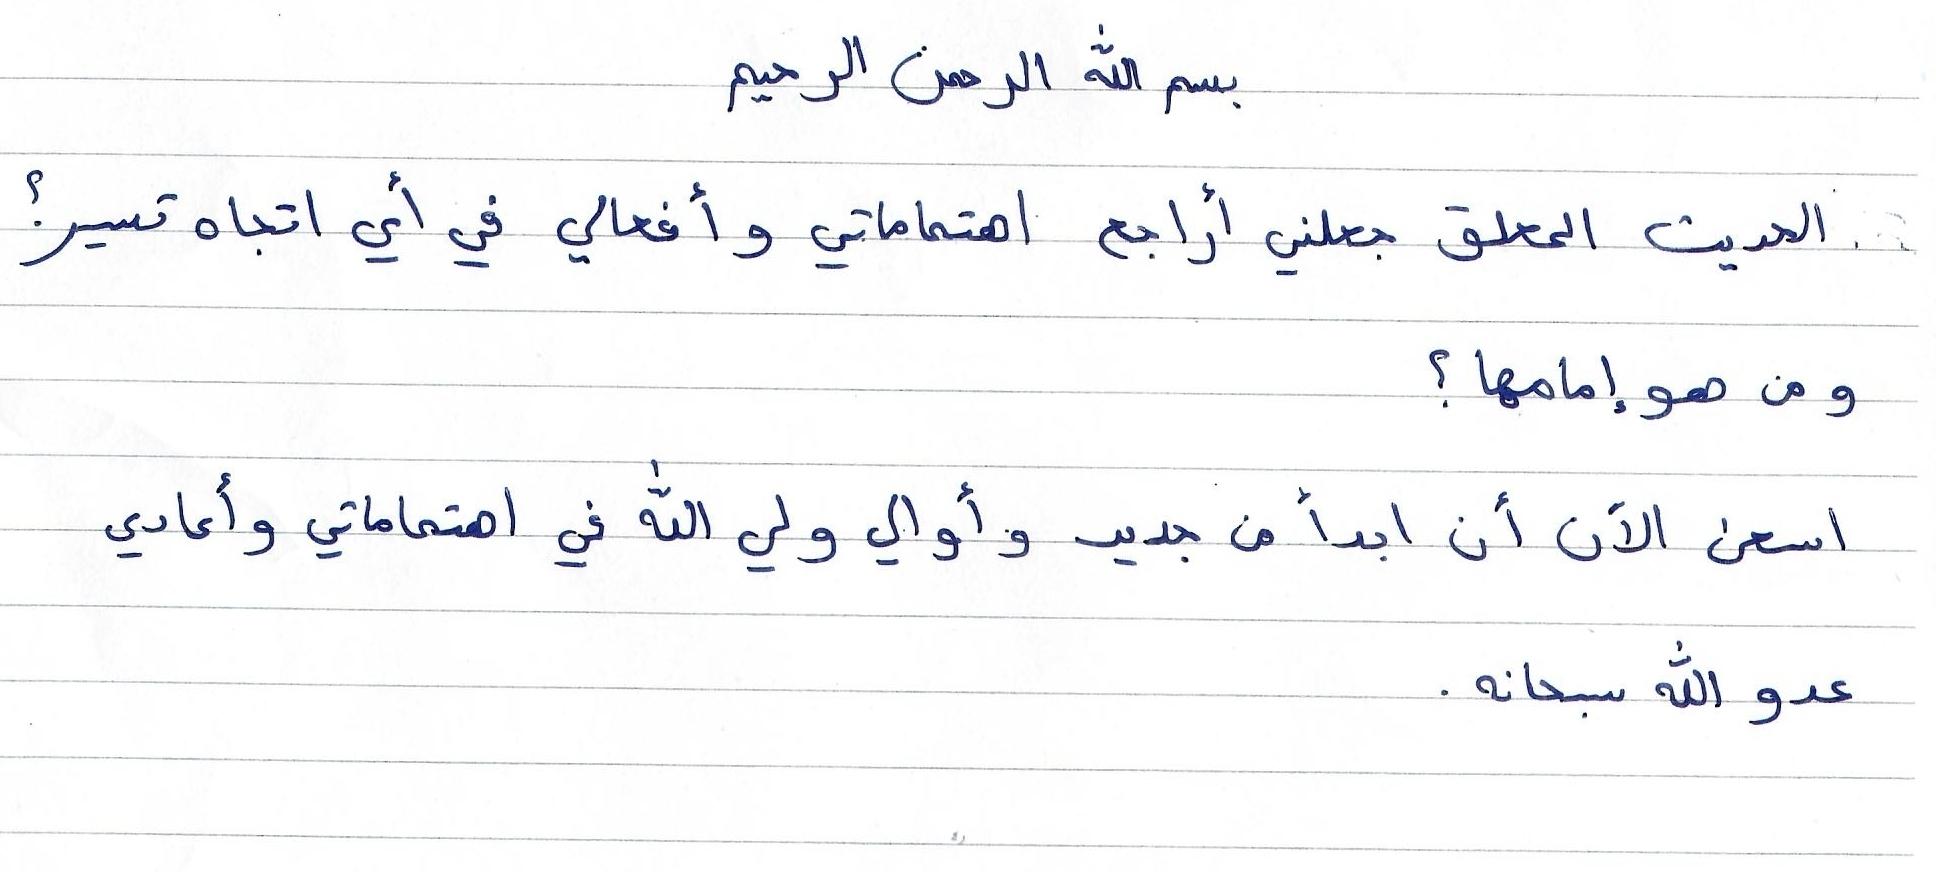 بسم الله الرحمن الرحيم
الحديث المعلق جعلني أراجع اهتماماتي و أفعالي في أي اتجاه تسير؟
و من هو إمامها؟
اسعى الآن أن ابدأ من جديد و أوالي ولي الله في اهتماماتي و أعادي
عدو الله سبحانه.